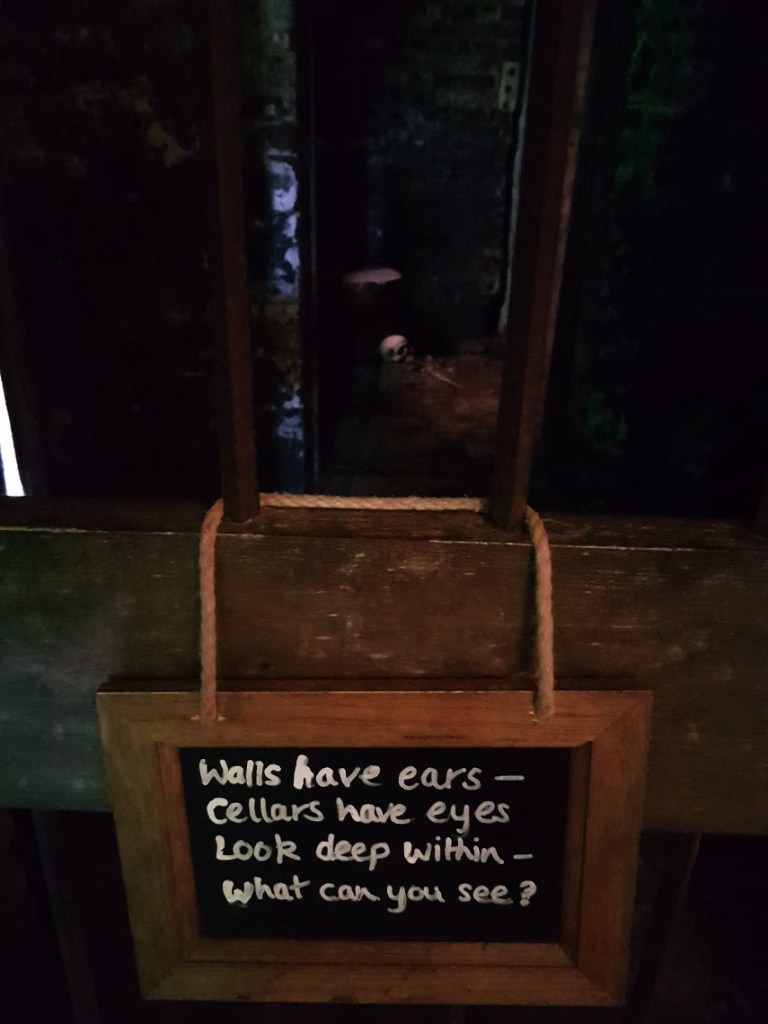 Walls have ears –
Cellars have eyes
Look deep within –
What can you see?